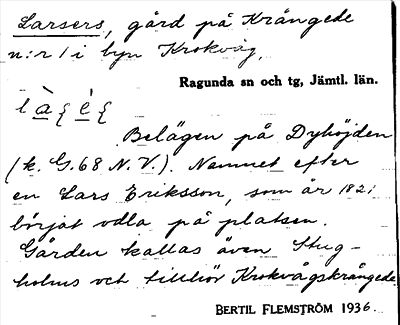 Larsers, gård på Krångede
n:r 1 i byn Krokvåg,
Ragunda sn och tg, Jämtl. län.
Belägen på Dyhöjden
(k. G.68 N.V.). Namnet efter
en Lars Eriksson, som år 1821
börjat odla på platsen.
Gården kallas även Stug-
holms och tillhör Krokvågskrångede.
BERTIL FLEMSTRÖM 1936.